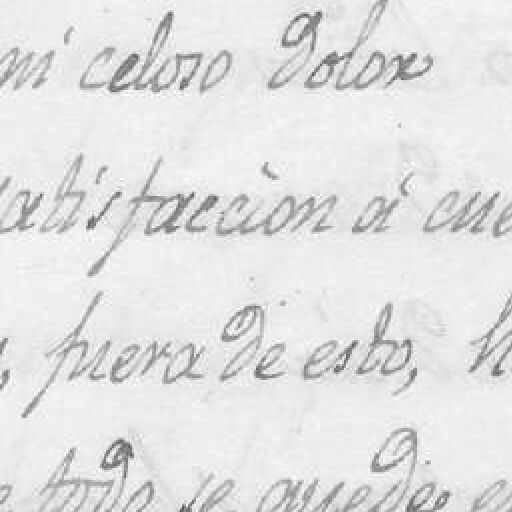 mi celoso dolor
satisfaccion á cue
, fuera de esto, h
e todo se quede e